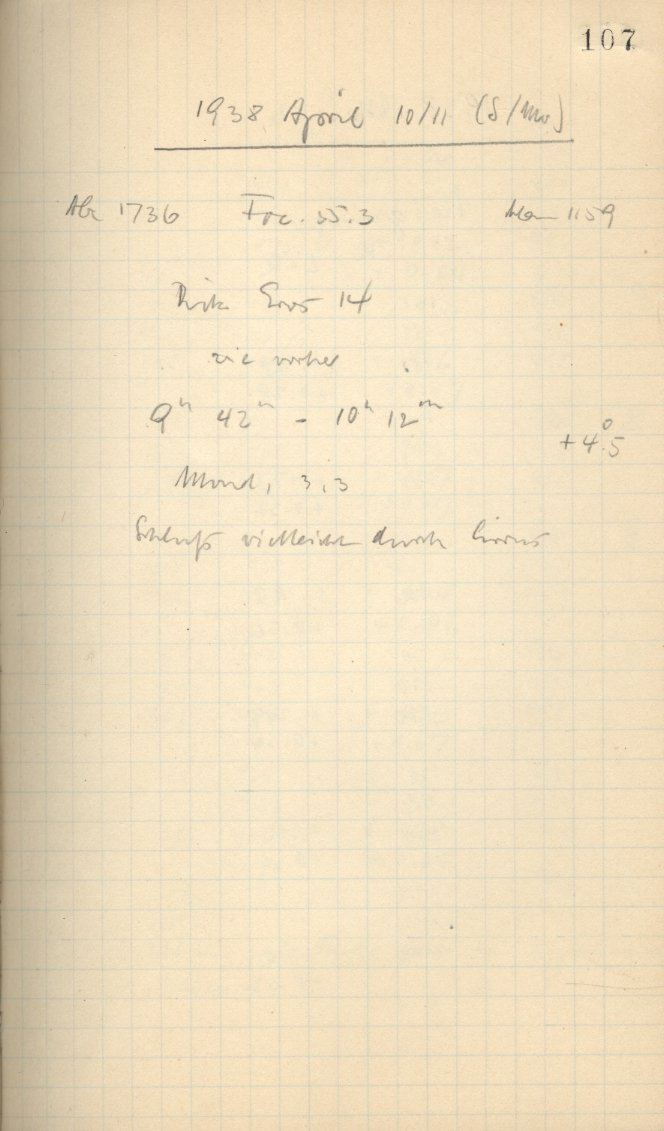 107
1938 April 10/11 (S/Mo)
1736 Foc. 55.3 1159
Eros 14
wie vorher
9h 42m - 10h 12m
+4°.5
Mond, 3,3
Schluß vielleicht durch Cirrus